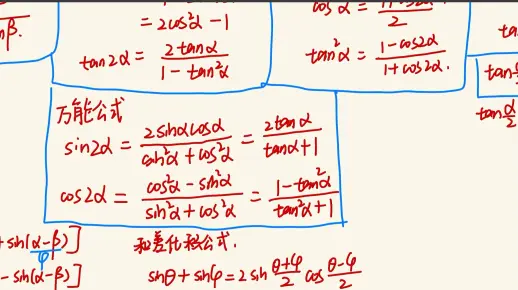 = 2cos²α - 1
tan2α = \frac{2tanα}{1 - tan²α}
tan²α = \frac{1-cos2α}{1+cos2α}.
万能公式
sin2α = \frac{2sinαcosα}{sin²α + cos²α} = \frac{2tanα}{tanα+1}
cos2α = \frac{cos²α - sin²α}{sin²α + cos²α} = \frac{1-tan²α}{tan²α+1}
+ sin(α-β)]
φ
- sin(α-β)]
和差化积公式.
sinθ + sinφ = 2sin\frac{θ+φ}{2}cos\frac{θ-φ}{2}